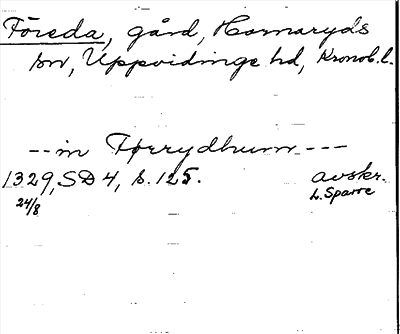 Föreda, gård, Hamaryds
sn, Uppvidinge hd, Kronob.l.
-- in Førrydhum ---
1329, SD 4, s. 125. avskr.
24/8 L. Sparre